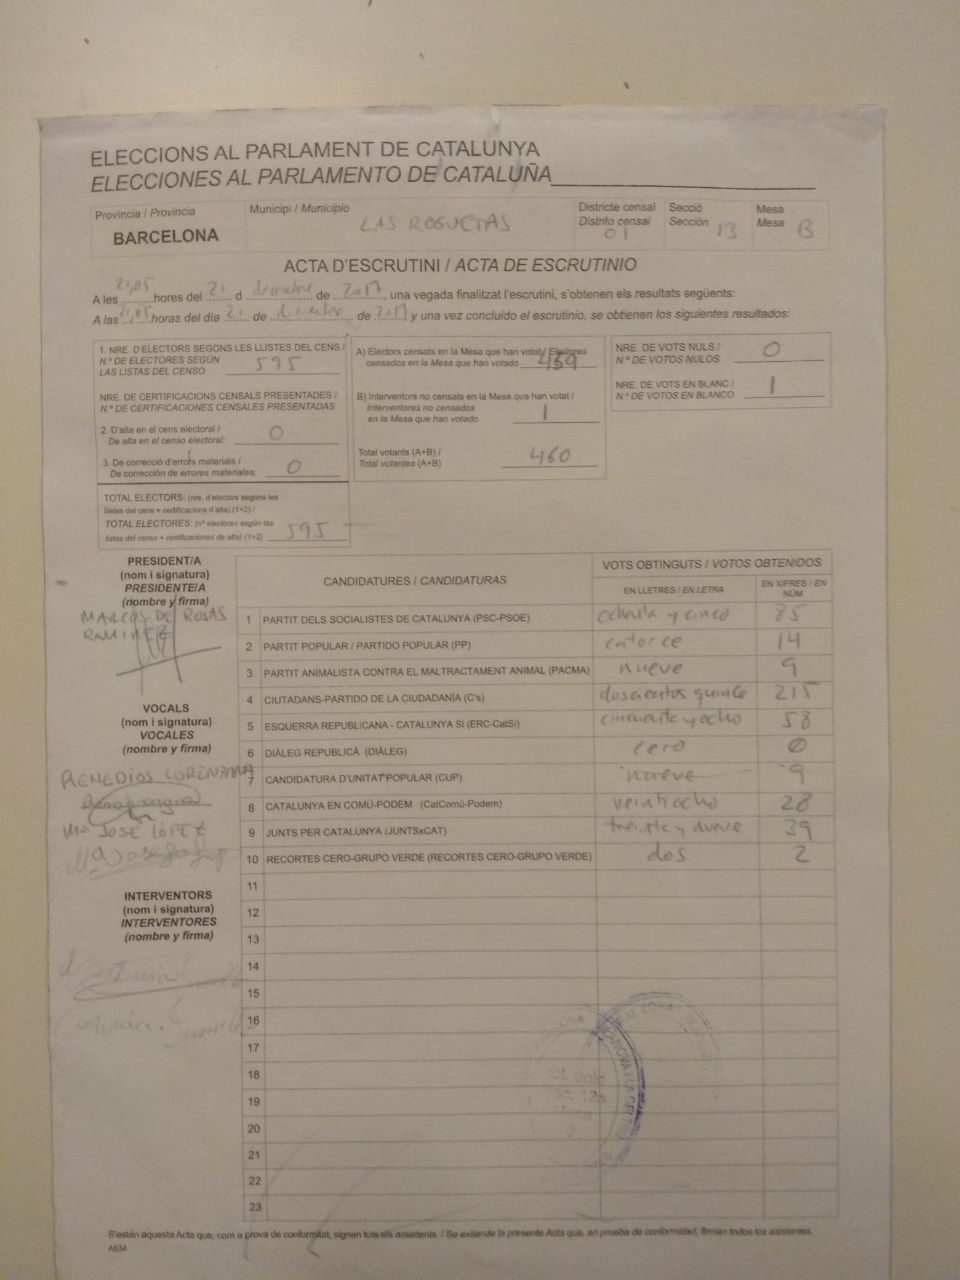 ELECCIONS AL PARLAMENT DE CATALUNYA
ELECCIONES AL PARLAMENTO DE CATALUÑA
Província / Provincia
BARCELONA
Municipi / Municipio
LAS ROQUETAS
Districte censal
Distrito censal
01
Secció
Sección 13
Mesa
Mesa B
ACTA D'ESCRUTINI / ACTA DE ESCRUTINIO
A les 21,05 hores del 21 d diciembre de 2017, una vegada finalitzat l'escrutini, s'obtenen els resultats següents:
A las 21,05 horas del día 21 de diciembre de 2017 y una vez concluido el escrutinio, se obtienen los siguientes resultados:
1. NRE. D'ELECTORS SEGONS LES LLISTES DEL CENS /
N.º DE ELECTORES SEGÚN
LAS LISTAS DEL CENSO 595
NRE. DE CERTIFICACIONS CENSALS PRESENTADES /
N.º DE CERTIFICACIONES CENSALES PRESENTADAS
2. D'alta en el cens electoral /
De alta en el censo electoral: 0
3. De correcció d'errors materials /
De corrección de errores materiales: 0
TOTAL ELECTORS: (nre. d'electors segons les
llistes del cens + certificacions d'alta) (1+2) /
TOTAL ELECTORES: (nº electores según las
listas del censo + certificaciones de alta) (1+2) 595
A) Electors censats en la Mesa que han votat / Electores
censados en la Mesa que han votado 459
B) Interventors no censats en la Mesa que han votat /
Interventores no censados
en la Mesa que han votado 1
Total votants (A+B) /
Total votantes (A+B) 460
NRE. DE VOTS NULS /
N.º DE VOTOS NULOS 0
NRE. DE VOTS EN BLANC /
N.º DE VOTOS EN BLANCO 1
PRESIDENT/A
(nom i signatura)
PRESIDENTE/A
(nombre y firma)
MARCOS DE ROSAS
RAMIREZ
VOCALS
(nom i signatura)
VOCALES
(nombre y firma)
REMEDIOS
Mª JOSE LÓPEZ
Mª Jose
INTERVENTORS
(nom i signatura)
INTERVENTORES
(nombre y firma)
CANDIDATURES / CANDIDATURAS
VOTS OBTINGUTS / VOTOS OBTENIDOS
EN LLETRES / EN LETRA
EN XIFRES / EN NÚM.
1 PARTIT DELS SOCIALISTES DE CATALUNYA (PSC-PSOE) ochenta y cinco 85
2 PARTIT POPULAR / PARTIDO POPULAR (PP) catorce 14
3 PARTIT ANIMALISTA CONTRA EL MALTRACTAMENT ANIMAL (PACMA) nueve 9
4 CIUTADANS-PARTIDO DE LA CIUDADANÍA (C's) doscientos quince 215
5 ESQUERRA REPUBLICANA - CATALUNYA SÍ (ERC-CatSí) cincuenta y ocho 58
6 DIÀLEG REPUBLICÀ (DIÀLEG) cero 0
7 CANDIDATURA D'UNITAT POPULAR (CUP) nueve 9
8 CATALUNYA EN COMÚ-PODEM (CatComú-Podem) veintiocho 28
9 JUNTS PER CATALUNYA (JUNTSxCAT) treinta y nueve 39
10 RECORTES CERO-GRUPO VERDE (RECORTES CERO-GRUPO VERDE) dos 2
11
12
13
14
15
16
17
18
19
20
21
22
23
S'estén aquesta Acta que, com a prova de conformitat, signen tots els assistents. / Se extiende la presente Acta que, en prueba de conformidad, firman todos los asistentes.
AEM